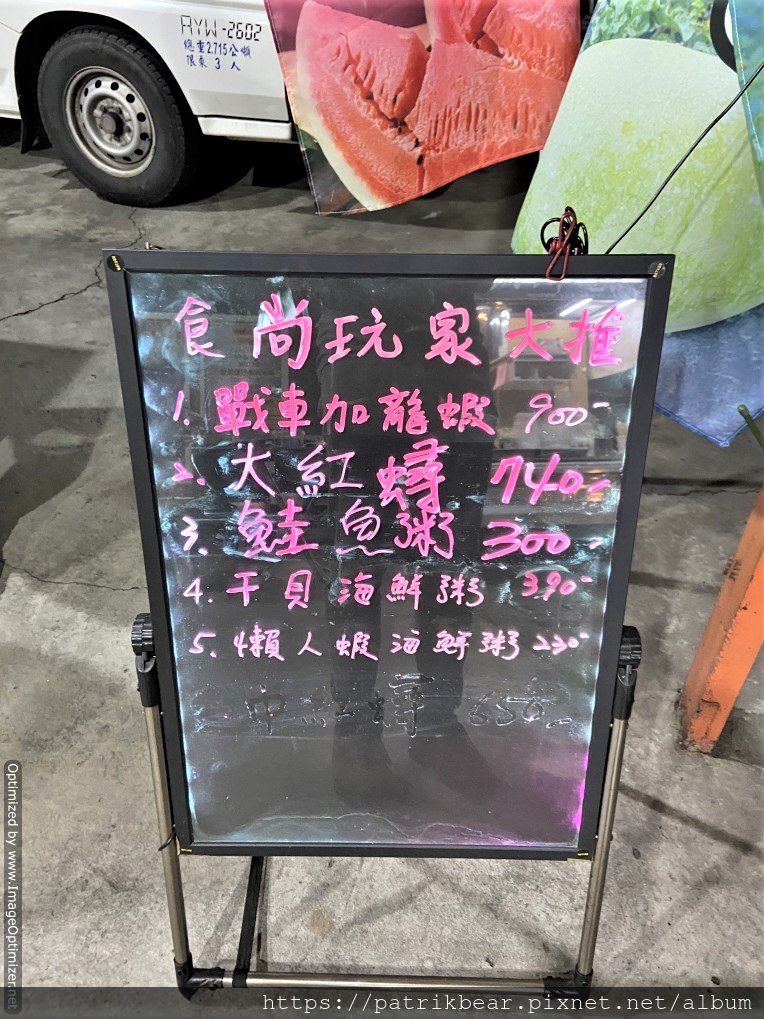 AYW-2602
總重2.715公噸
限乘 3 人
食尚玩家大推
1. 戰車加龍蝦 900-
2. 大紅蟳 740-
3. 鮭魚粥 300-
4. 干貝海鮮粥 390-
5. 懶人蝦海鮮粥 230-
中紅蟳 650-
Optimized by www.ImageOptimizer.net
https://patrikbear.pixnet.net/album